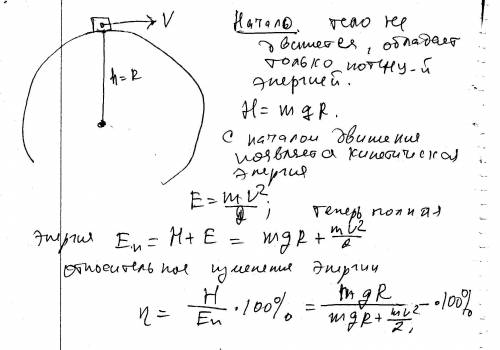 V
h=R
Начало. тело не
движется, обладает
только потну-й
энергией.
H = mgR.
с началом движения
появляется кинетическая
энергия
E = mv²/2; теперь полная
энергия Eп = H + E = mgR + mv²/2
относительное изменение энергии
η = H/Eп · 100% = mgR/(mgR + mv²/2) · 100%